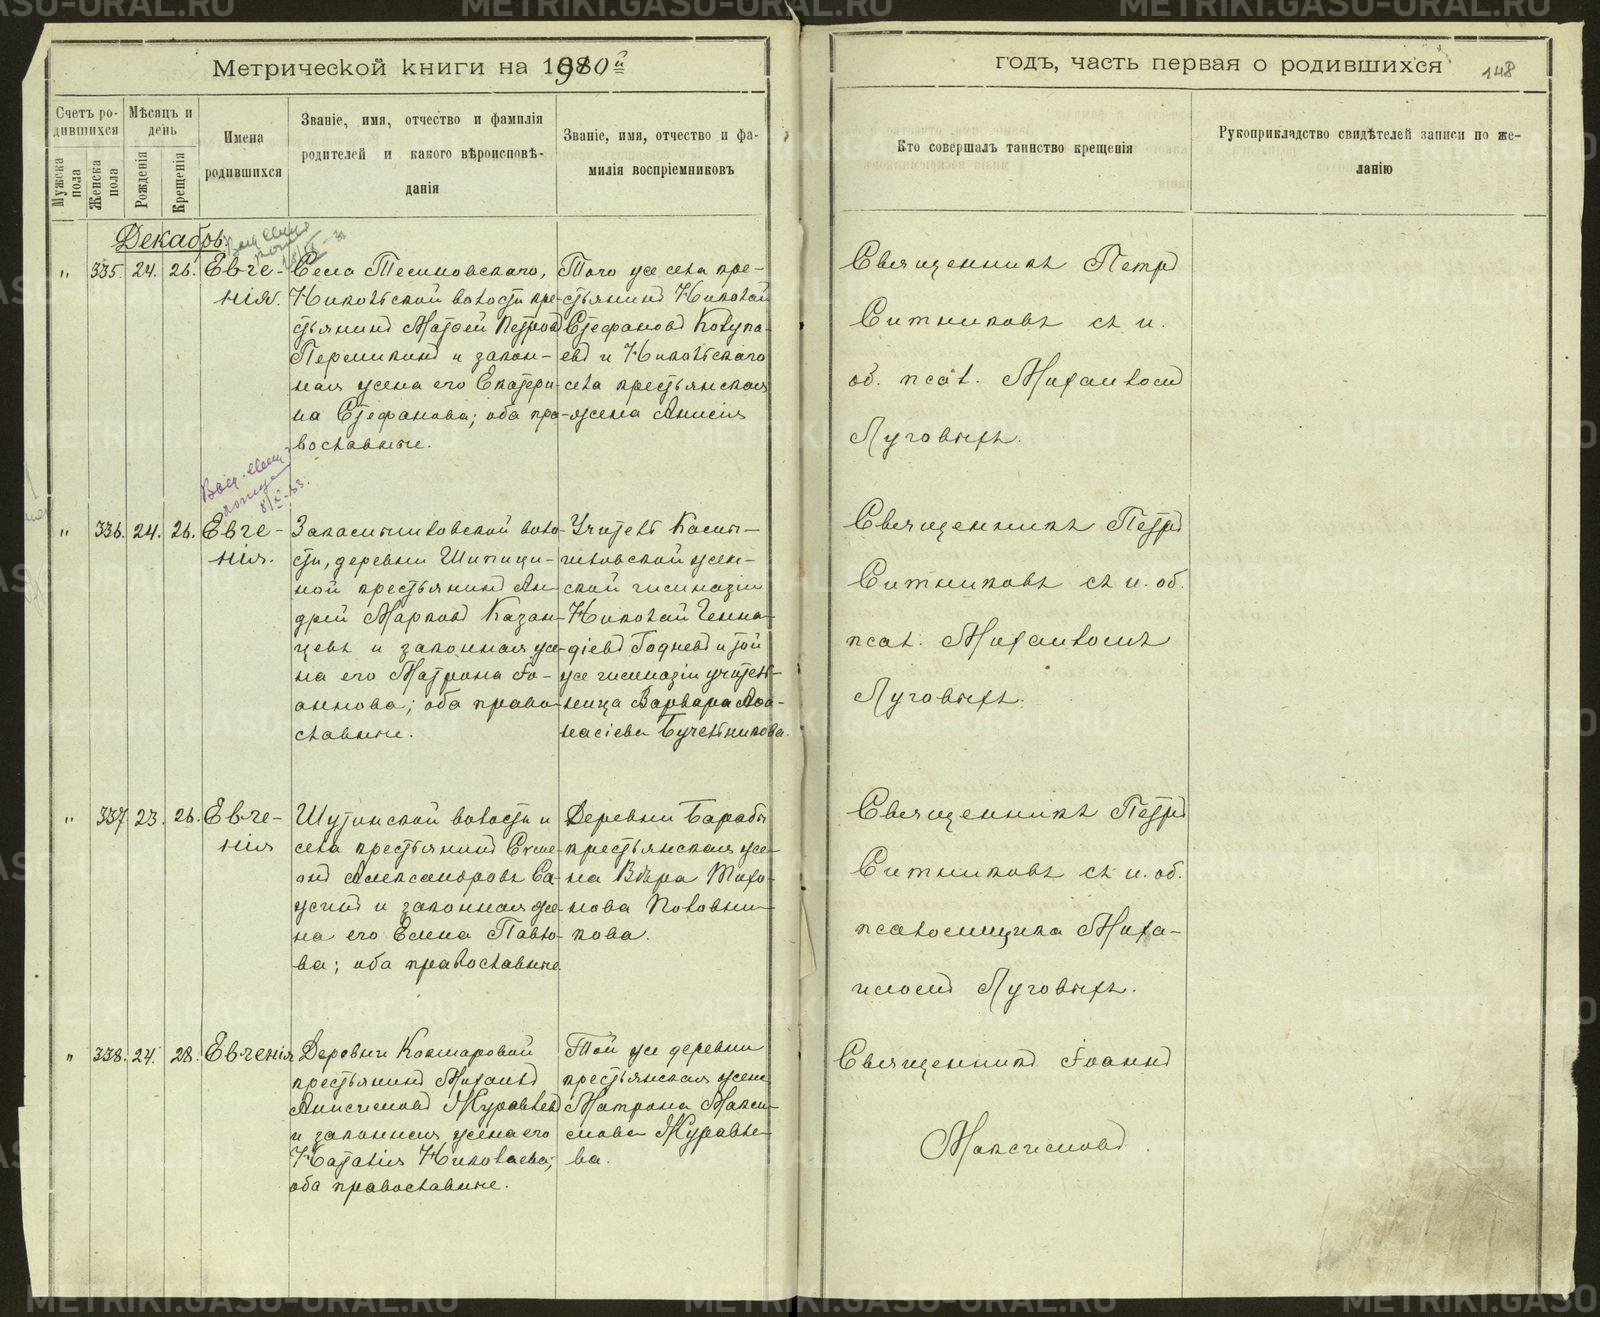 Метрической книги на 1910й
годъ, часть первая о родившихся
148
Счетъ ро-
дившихся
Мѣсяцъ и
день
Мужска
пола
Женска
пола
Рожденія
Крещенія
Имена
родившихся
Званіе, имя, отчество и фамилія
родителей и какого вѣроисповѣ-
данія
Званіе, имя, отчество и фа-
милія воспріемниковъ
Кто совершалъ таинство крещенія
Рукоприкладство свидѣтелей записи по же-
ланію
Декабрь.
„ 335. 24. 26. Евге-
нія.
Села
Никольской волости кре-
стьянинъ Матѳей Петровъ
Пермикинъ и закон-
ная жена его Екатери-
на Стефанова; оба пра-
вославные.
Того же села кре-
стьянинъ Николай
Стефановъ Колупа-
евъ и Никольскаго
села крестьянская
жена Анисія
Священникъ Петръ
Ситниковъ съ и.
об. псал. Михаиломъ
Луговыхъ.
„ 336. 24. 26. Евге-
нія.
волo-
сти, деревни Шипици-
ной крестьянинъ Ан-
дрей Марковъ Казан-
цевъ и законная же-
на его Матрона Іо-
аннова; оба право-
славные.
Учитель Камы-
шловской жен-
ской гимназіи
Николай Генна-
діевъ Годневъ и той
же гимназіи учитель-
ница Варвара Аѳа-
насіева Бучельникова.
Священникъ Петръ
Ситниковъ съ и. об.
псал. Михаиломъ
Луговыхъ.
„ 337. 23. 26. Евге-
нія
Шутинской волости и
села крестьянинъ Симе-
онъ Александровъ Са-
жинъ и законная же-
на его Елена Павло-
ва; оба православные
Деревни Барабы
крестьянская же-
на Вѣра Тихо-
нова Половни-
кова.
Священникъ Петръ
Ситниковъ съ и. об.
псаломщика Миха-
иломъ Луговыхъ.
„ 338. 24. 28. Евгенія
Деревни Кокшаровой
крестьянинъ Михаилъ
Анисимовъ Журавлевъ
и законная жена его
Наталія Николаева;
оба православные.
Той же деревни
крестьянская жена
Матрона Макси-
мова Журавле-
ва.
Священникъ Іоаннъ
Максимовъ.
METRIKI.GASO-URAL.RU